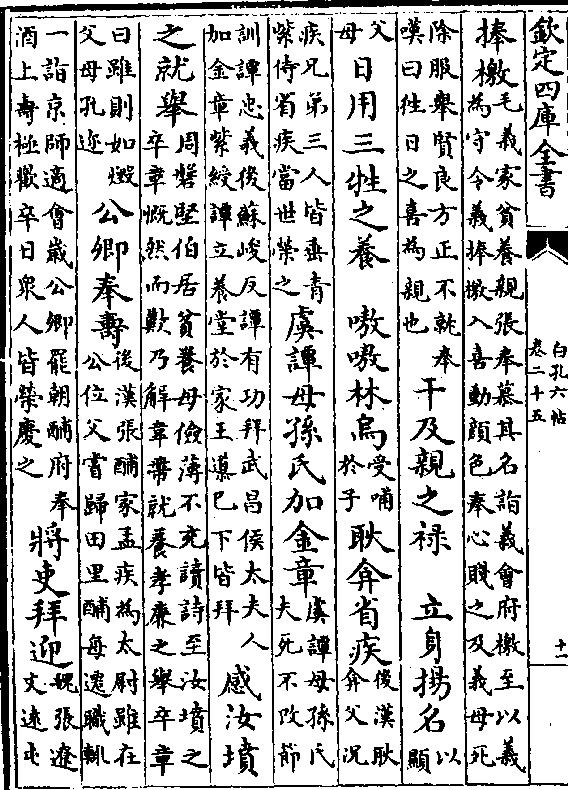 欽定四庫全書
白孔六帖
卷二十五
十一
捧檄毛義家貧養親張奉慕其名詣義會府檄至以義為守令義捧檄入喜動顏色奉心賤之及義母死
除服舉賢良方正不就奉嘆曰往日之喜為親也 干及親之祿 立身揚名以顯
父母日用三牲之養 嗷嗷林烏受哺於子 耿弇省疾後漢耿弇父況
疾兄弟三人皆垂青紫侍省疾當世榮之 虞譚母孫氏加金章虞譚母孫氏夫死不改節
訓譚忠義後蘇峻反譚有功拜武昌侯太夫人加金章紫綬譚立養堂於家王導已下皆拜 感汝墳
之就舉周磐堅伯居貧養母儉薄不充讀詩至汝墳之卒章慨然而歎乃解韋帶就養孝廉之舉卒章
曰雖則如燬父母孔邇 公卿奉壽後漢張酺家孟疾為太尉雖在公位父嘗歸田里酺每遷職輒
一詣京師適會歲公卿罷朝酺府奉酒上壽極歡卒日衆人皆榮慶之 將吏拜迎魏張遼文遠屯